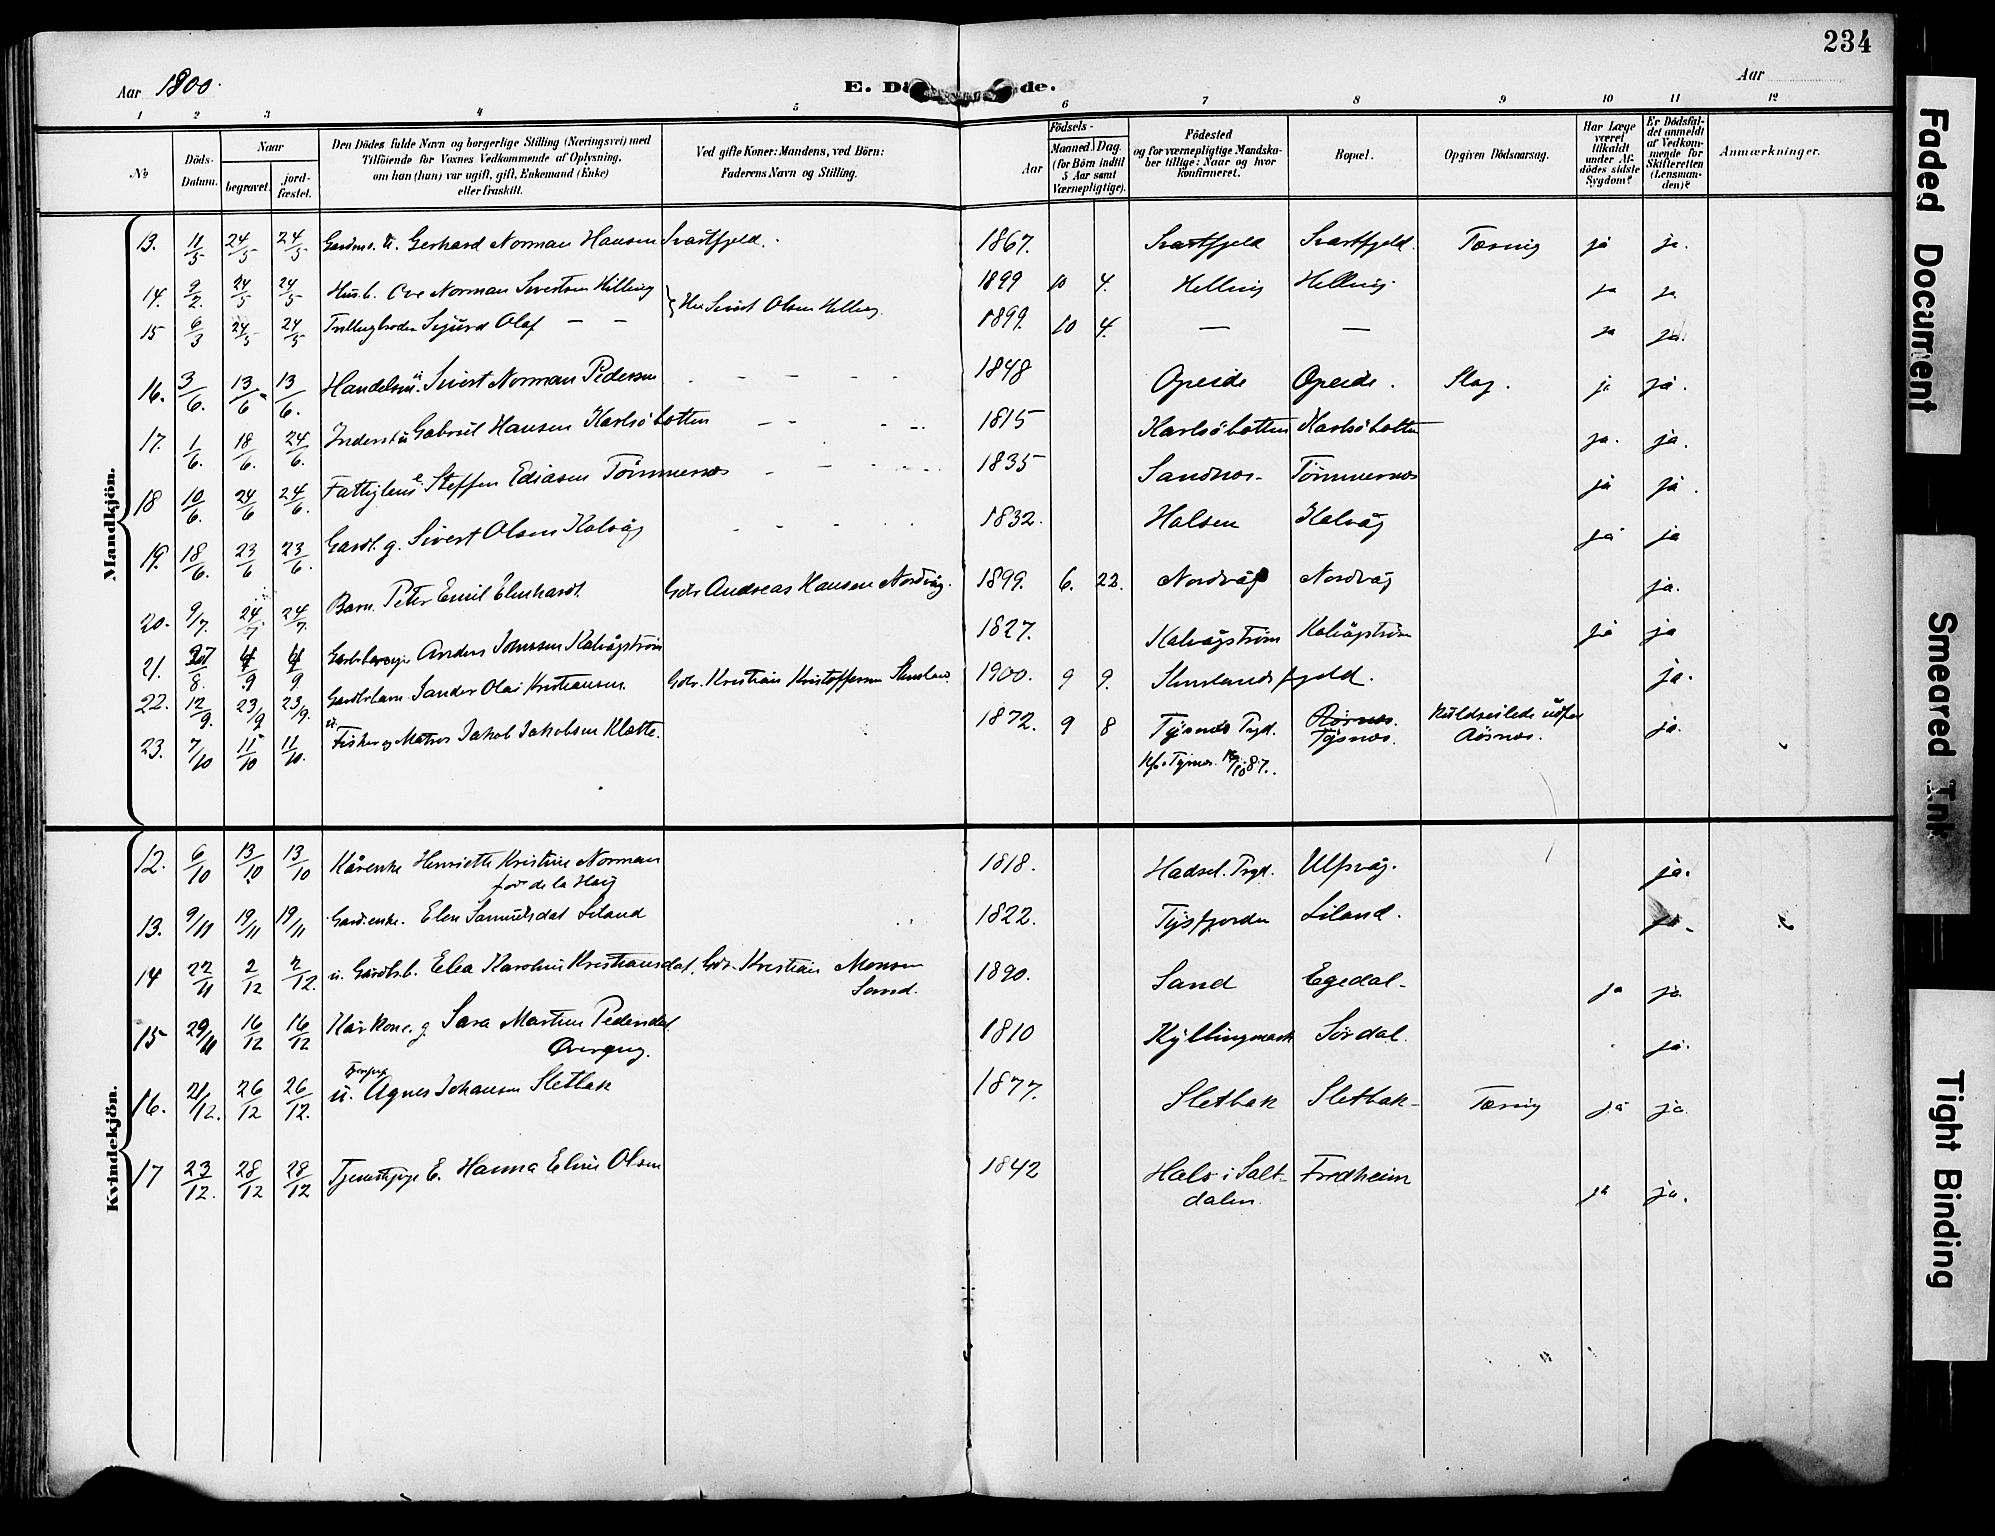 234
Aar 1900.
E. Dö de.
Aar
1 2 3 4 5 6 7 8 9 10 11 12
No
Döds-Datum.
Naar
begravet.
jordfæstet.
Den Dödes fulde Navn og borgerlige Stilling (Næringsvei) med
Tilföiende for Voxnes Vedkommende af Oplysning,
om han (hun) var ugift, gift, Enkemand (Enke)
eller fraskilt.
Ved gifte Koner: Mandens, ved Börn:
Faderens Navn og Stilling.
Födsels-
Aar
Maaned. Dag.
(for Börn indtil
5 Aar samt
Værnepligtige).
Födested
og for værnepligtige Mandska-
ber tillige: Naar og hvor
konfirmeret.
Bopæl.
Opgiven Dödsaarsag.
Har Læge
været
tilkaldt
under Af-
dödes sidste
Sygdom?
Er Dödsfal-
det anmeldt
af Vedkom-
mende for
Skifteretten
(Lensman-
den)?
Anmærkninger.
Mandkjön.
13. 11/5 24/5 24/5 Gerhard Norman Hansen Svartfjeld. 1867. Svartfjeld Svartfjeld. Tæring ja ja.
14. 9/2 24/5 24/5 Ove Norman Sivertsen Helling Sivert Olsen Helling 1899 10 4. Helling Helling. ja ja
15 6/3 24/5 24/5 Tvillingbroder Sigurd Olaf — — 1899. 10 4. — — ja ja.
16. 3/6. 13/6 13/6. Handelsm. Sivert Norman Pedersen - - - - 1848 Opeide Opeide. Slag. ja ja.
17. 1/6. 18/6. 24/6. Gabriel Hansen Karlsöbotten - - - - 1815 Karlsöbotten Karlsöbotten ja. ja.
18 10/6. 24/6 24/6. Steffen Ediasen Tömmernes - - - 1835 Sandnes- Tömmernes ja ja.
19. 18/6. 23/6 23/6. Gaardb. g. Sivert Olsen Kalvåg - - - - 1832. Halsen Kalvåg ja ja
20. 9/7. 24/7. 24/7. Barn. Peter Emil Elenhardt Gdr Andreas Hansen Nordvåg. 1899. 6. 22. Nordvåg Nordvåg ja.
21. 27/8. 4/9 4/9 Anders Johnsen Kalvågström 1827. Kalvågström Kalvågström ja ja
22. 12/9. 23/9 23/9. Sander Olai Kristiansen. Gdr. Kristian Kristoffersen Stensland. 1900. 9 9. Stenslandsfjeld. ja.
23. 7/10 11/10 11/10. u. Fisker og Matros Jakob Jakobsen Klotte. 1872. 9 8 Tysnes Prgd. Rörnes. Kuldseilede udfor
Tysnes. Rörnes. ja.
Kvindekjön.
12. 6/10 13/10 13/10 Kårenke Henriette Kristine Norman 1818. Hadsel. Prgd. Ulfsvåg. ja.
för de la Haij
13. 9/11 19/11 19/11 Gard.enke. Elen Samuelsdat Liland 1822. Tysfjorden Liland. ja.
14 22/11 2/12 2/12. u. Elea Karoline Kristiansdat. Gdr. Kristian Monsen 1890. Sand Egedal. ja ja
Sand.
15 29/11 16/12 16/12 Kårkone. g. Sara Martine Pedersdat. 1810 Kyllingmark Sördal. ja.
16. 21/12. 26/12 26/12. u. Agnes Johansen Sletbak 1877. Sletbak Sletbak- Tæring ja ja.
17 23/12. 28/12 28/12 E. Hanna Eline Olsen 1842 Hals i Salt- Fredheim ja ja.
dalen.
Faded Document
Smeared Ink
Tight Binding